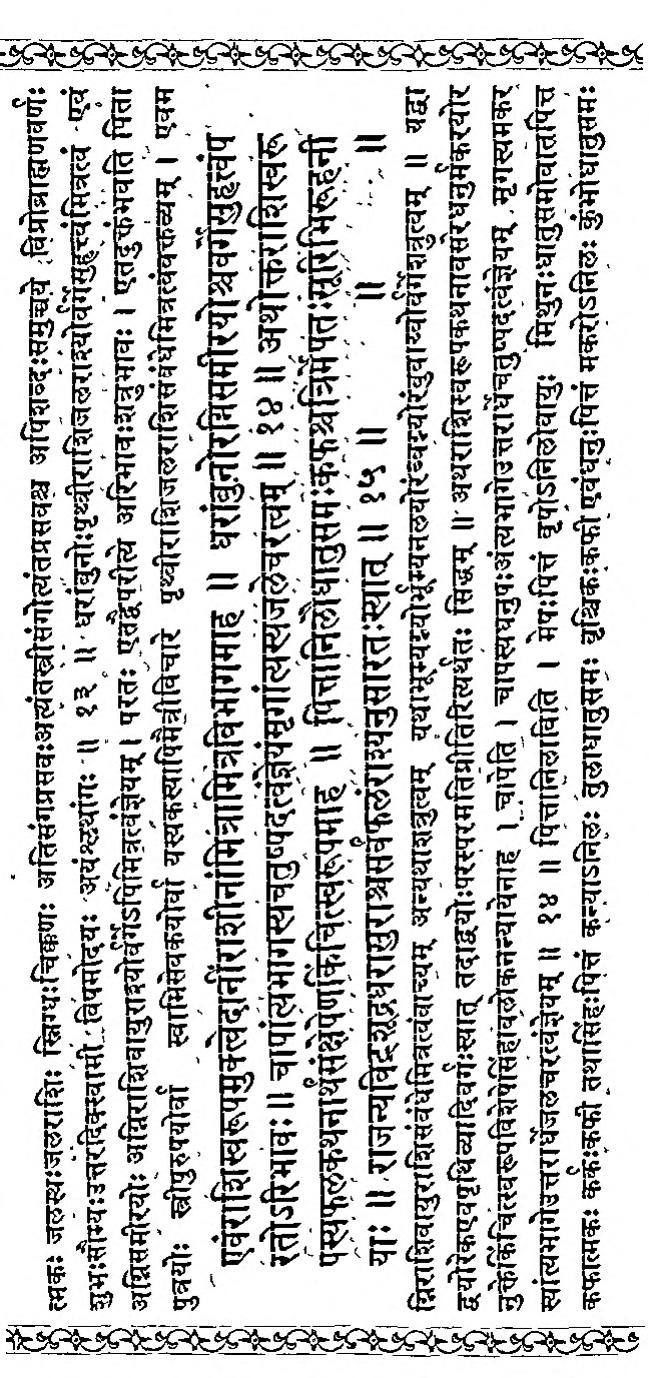 त्मकः जलस्थःजलराशिः स्निग्धःचिक्कणः अतिसंगप्रसवःअत्यंतस्त्रीसंगोत्यंतप्रसवश्च अपिशब्दःसमुच्चये विप्रोब्राह्मणवर्णः
शुभःसौम्यःउत्तरदिक्स्वामी विषमोदयः अयंश्लथांगः ॥ १३ ॥ धरांबुनोःपृथ्वीराशिजलराश्योर्वर्गेसुहृत्त्वंमित्रत्वं एवं
अग्निसमीरयोः अग्निराशिवायुराश्योर्वर्गेऽपिमित्रत्वंज्ञेयम् । परतः एतद्वैपरीत्ये अरिभावःशत्रुभावः । एतदुक्तंभवति पिता
पुत्रयोः स्त्रीपुरुषयोर्वा स्वामिसेवकयोर्वा यस्यकस्यापिमैत्रीविचारे पृथ्वीराशिजलराशिसंबंधेमित्रत्वंवक्तव्यम् । एवम
एवंराशिस्वरूपमुक्त्वेदानींराशीनांमित्रामित्रविभागमाह ॥ धरांबुनोरग्निसमीरयोश्चवर्गेसुहृत्त्वंप
रतोऽरिभावः ॥ चापांत्यभागस्यचतुष्पदत्वंज्ञेयंमृगांत्यस्यजलेचरत्वम् ॥ १४ ॥ अथोक्तराशिस्वरू
पस्यफलकथनार्थसंक्षेपेणकिंचित्स्वरूपमाह ॥ पित्तानिलौधातुसमःकफश्चत्रिर्मेषतःसूरिभिरूहनी
याः ॥ राजन्यविट्शूद्रधरासुराश्चसर्वंफलंराश्यनुसारतःस्यात् ॥ १५ ॥ ॥ ॥
ग्निराशिवायुराशिसंबंधेमित्रत्वंवाच्यम् अन्यथाशत्रुत्वम् यथाभूम्यग्न्योर्भूम्यनलयोरंब्वग्न्योरंबुवाय्वोर्वर्गेशत्रुत्वम् ॥ यद्वा
द्वयोरेकएवपृथिव्यादिवर्गःस्यात् तदाद्वयोःपरस्परमतिप्रीतिरित्यर्थतः सिद्धम् ॥ अथराशिस्वरूपकथनावसरेधनुर्मकरयोर
नुक्तंकिंचित्स्वरूपविशेषंसिंहावलोकनन्यायेनाह । चापेति । चापस्यधनुषःअंत्यभागेउत्तरार्धेचतुष्पदत्वंज्ञेयम् मृगस्यमकर
स्यांत्यभागेउत्तरार्धेजलचरत्वंज्ञेयम् ॥ १४ ॥ पित्तानिलाविति । मेषःपित्तं वृषोऽनिलोवायुः मिथुनःधातुसमोवातपित्त
कफात्मकः कर्कःकफी तथासिंहःपित्तं कन्याऽनिलः तुलाधातुसमः वृश्चिकःकफी एवंधनुःपित्तं मकरोऽनिलः कुंभोधातुसमः